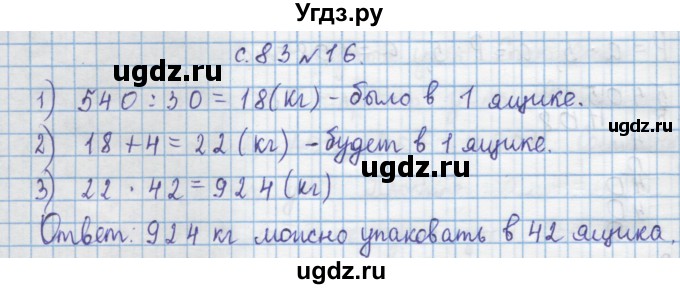 Угдз.ру
с. 83 № 16.
1) 540 : 30 = 18 (кг) - было в 1 ящике.
uhdz.ru
uhdz.ru
2) 18 + 4 = 22 (кг) - будет в 1 ящике.
3) 22 · 42 = 924 (кг)
uhdz.ru
Ответ: 924 кг можно упаковать в 42 ящика.
uhdz.ru
uhdz.ru